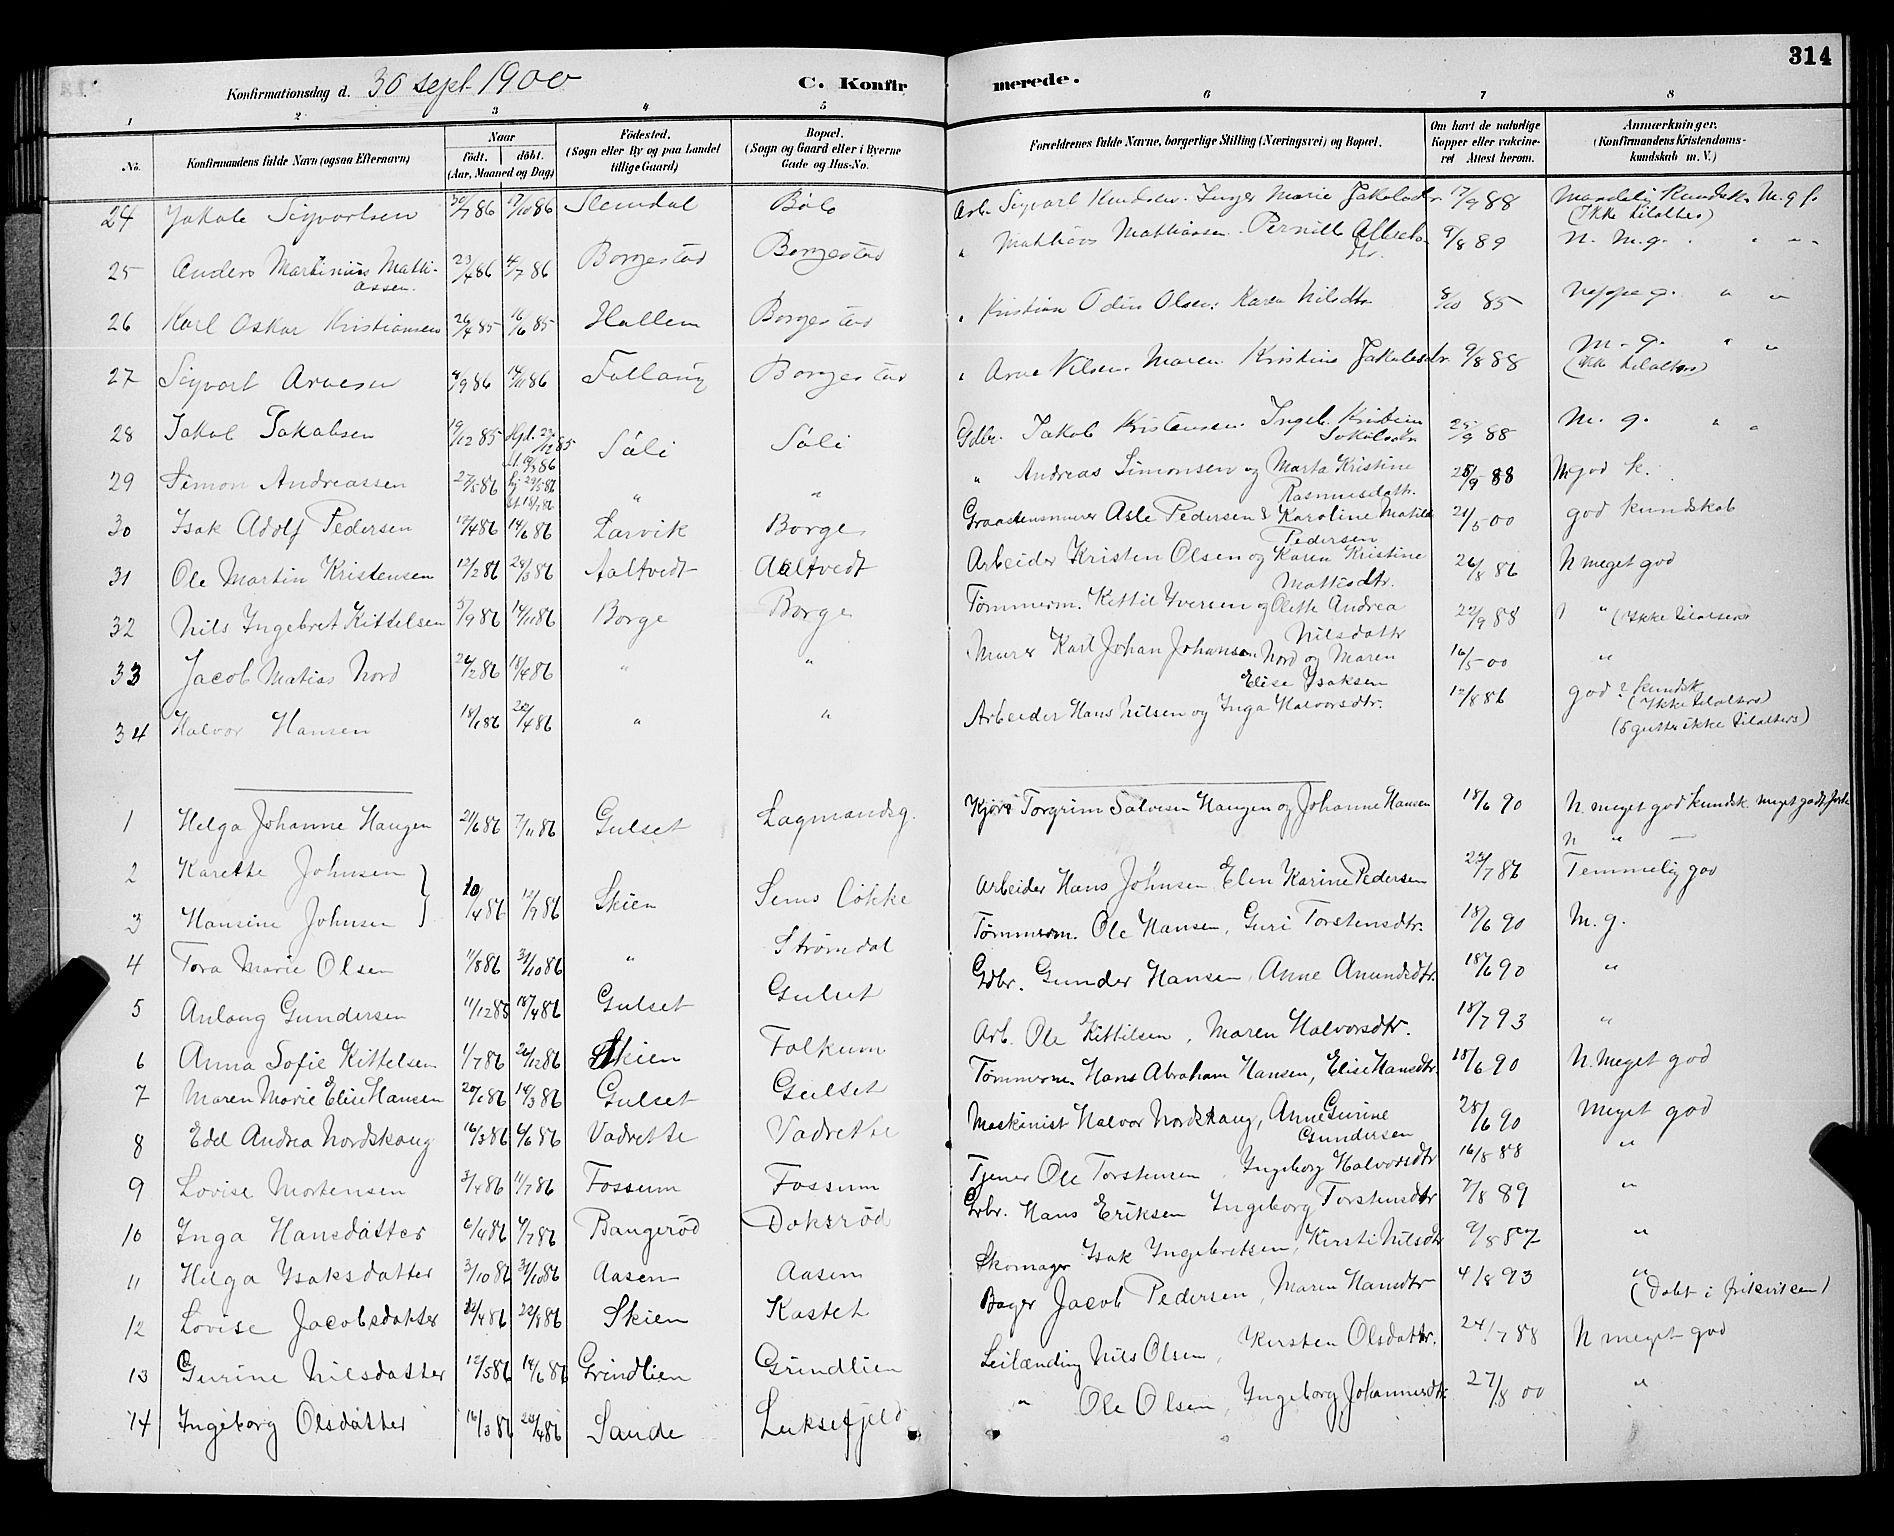 314
Konfirmationsdag d. 30 sept 1900 C. Konfirmerede.
1 2 3 4 5 6 7 8
No. Konfirmandens fulde Navn (ogsaa Efternavn) Naar født. døbt. (Aar, Maaned og Dag) Fødested. (Sogn eller By og paa Landet tillige Gaard) Bopæl. (Sogn og Gaard eller i Byerne Gade og Hus-No. Forældrenes fulde Navne, borgerlige Stilling (Næringsvei) og Bopæl. Om havt de naturlige Kopper eller vakcineret Attest herom. Anmærkninger. (Konfirmandens Kristendomskundskab m. V.)
24 Jakob Sigvartsen 30/7 86 17/10 86 Slemdal Bøle Arb. Sigvart Knudsen. Inger Marie Jakobsdtr 17/9 88 Maadelig Kundsk. M. g. f.
(Ikke tilalters)
25 Anders Martinius Mattiassen. 23/4 86 4/7 86 Borgestad Borgestad " Matthias Mathiassen. Pernille Albertsdtr. 9/8 89 N. M. g. " "
26 Karl Oskar Kristiansen 26/4 85 16/6 85 Hallem Borgestad " Kristian Odin Olsen. Karen Nilsdtr 8/10 85 Neppe g. " "
27 Sigvart Arvesen 4/9 86 14/11 86 Follaug Borgestad " Arve Nilsen. Maren Kristine Jakobsdtr. 9/8 88 M. g. " "
(ikke tilalters)
28 Jakob Jakobsen 19/12 85 Hjd. 27/12 85 Søli Søli Gdbr. Jakob Kristensen. Ingeb. Kristine 25/9 88 M. g. " "
29 Simon Andreassen 27/5 86 " " " Andreas Simonsen og Marta Kristine Rasmusdattr. 25/9 88 M god k.
30 Isak Adolf Pedersen 12/4 86 14/6 86 Larvik Borge Graastensmurer Asle Pedersen & Karoline Matilde Pedersen 21/5 00 god kundskab
31 Ole Martin Kristensen 12/2 86 28/3 86 Aaltvedt Aaltvedt Arbeider Kristen Olsen og Karen Kristine Mattisdtr. 26/8 86 N meget god
32 Nils Ingebret Kittelsen 5/9 86 14/11 86 Borge Borge Tømmerm. Kittil Yversen og Olette Andrea Nilsdattr 22/9 88 " (Ikke tilalters)
33 Jacob Matias Nord 26/2 86 18/4 86 " " Murer Karl Johan Johansen Nord og Maren Elise Ysaksen 16/5 00 "
34 Halvor Hansen 18/1 86 26/4 86 " " Arbeider Hans Nilsen og Inga Halvorsdtr. 12/8 86 god ? kundsk
(Ikke tilalters)
(5 gutter ikke tilalters)
1 Helga Johanne Haugen 21/6 86 7/11 86 Gulset Lagmandsg. Kjøre Torgrim Salvesen Haugen og Johanne Hansen 18/6 90 N. meget god kundsk. meget godt forh
2 Karethe Johnsen } n " —
3 Hansine Johnsen } 10/4 86 12/9 86 Skien Sems Løkke Arbeider Hans Johnsen, Elen Karine Pedersen 23/7 86 Temmelig god
4 Tora Marie Olsen 1/8 86 31/10 86 " Strømdal Tømmerm. Ole Hansen, Guri Torstensdtr. 18/6 90 M. g.
5 Anlaug Gundersen 11/12 85 18/4 86 Gulset Gulset Gdbr. Gunder Hansen, Anne Amundsdtr. 18/6 90 "
6 Anna Sofie Kittelsen 1/7 86 26/12 86 Skien Falkum Arb. Ole Kittilsen, Maren Halvorsdtr. 18/7 93 "
7 Maren Marie Elise Hansen 20/1 86 14/3 86 Gulset Gulset Tømmerm. Hans Abraham Hansen, Elise Hansdtr. 18/6 90 N. Meget god
8 Edel Andrea Nordskaug 16/3 86 4/6 86 Vadrette Vadrette Maskinist Halvor Nordskaug, Anne Gurine Gundersen 28/6 90 Meget god
9 Lovise Mortensen 3/4 86 11/7 86 Fossum Fossum Tjener Ole Torstensen, Ingeborg Halvorsdtr 16/8 88 "
10 Inga Hansdatter 6/4 86 4/7 86 Bangerød Doksrød Gdbr. Hans Eriksen Ingeborg Torstensdtr 7/8 89 "
11 Helga Ysaksdatter 3/10 86 31/10 86 Aasen Aasen Skomager Ysak Ingebretsen, Kirsti Nilsdtr 9/8 87 "
12 Lovise Jacobsdatter 22/4 86 22/8 86 Skien Kastet Bager Jacob Pedersen, Maren Hansdtr 4/8 93 "
(Døbt i frikirken)
13 Gurine Nilsdatter 12/5 86 14/6 86 Grindlien Grindlien Leilænding Nils Olsen, Kirsten Olsdattr. 24/7 88 N meget god
14 Ingeborg Olsdatter 16/3 86 26/4 86 Sande Luksefjeld " Ole Olsen, Ingeborg Johannesdtr 27/8 00 "